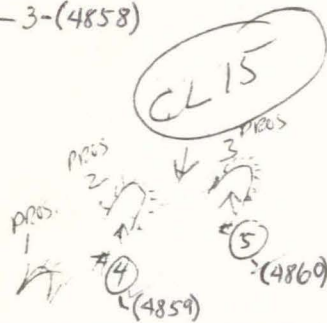 - 3-(4858)
CL 15
PROS
3
PROS
2
PROS.
1
#④
(4859)
#⑤
(4860)